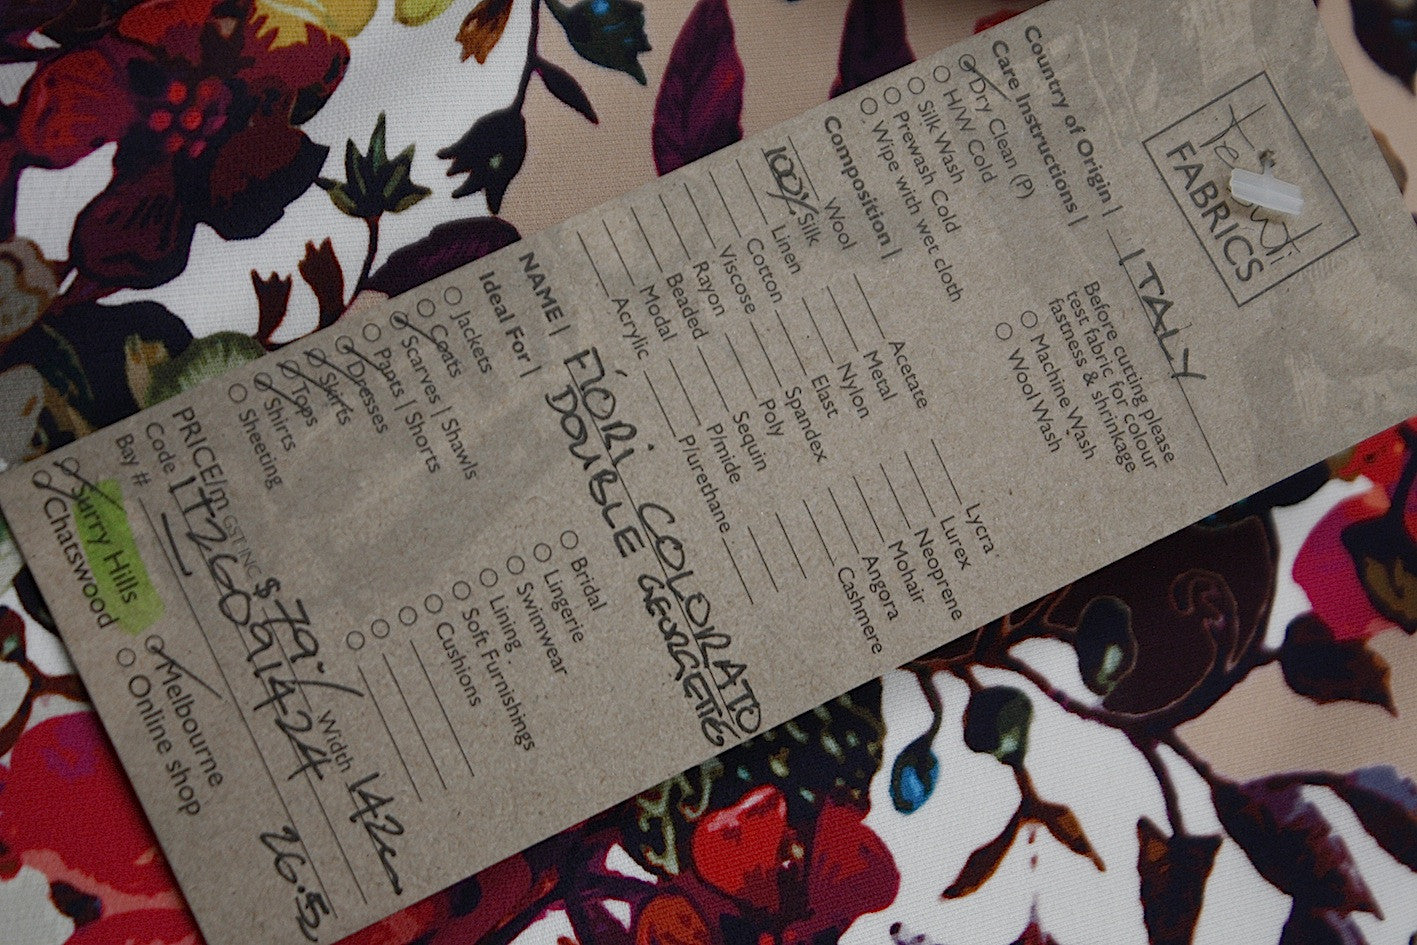 Tessuti
FABRICS
Country of Origin | ITALY
Care Instructions |
Dry Clean (P)
H/W Cold
Silk Wash
Prewash Cold
Wipe with wet cloth
Before cutting please
test fabric for colour
fastness & shrinkage
Machine Wash
Wool Wash
Composition |
Wool
100% Silk
Linen
Cotton
Viscose
Rayon
Beaded
Modal
Acrylic
Acetate
Metal
Nylon
Elast
Spandex
Poly
Sequin
P/mide
P/urethane
Lycra
Lurex
Neoprene
Mohair
Angora
Cashmere
NAME | FIORI COLORATO
DOUBLE GEORGETTE
Ideal For |
Jackets
Coats
Scarves | Shawls
Pants | Shorts
Dresses
Skirts
Tops
Shirts
Sheeting
Bridal
Lingerie
Swimwear
Lining
Soft Furnishings
Cushions
PRICE/m GST INC $79.- Width 142cm
Code 1426091424
Bay # 26.52
Surry Hills
Chatswood
Melbourne
Online shop